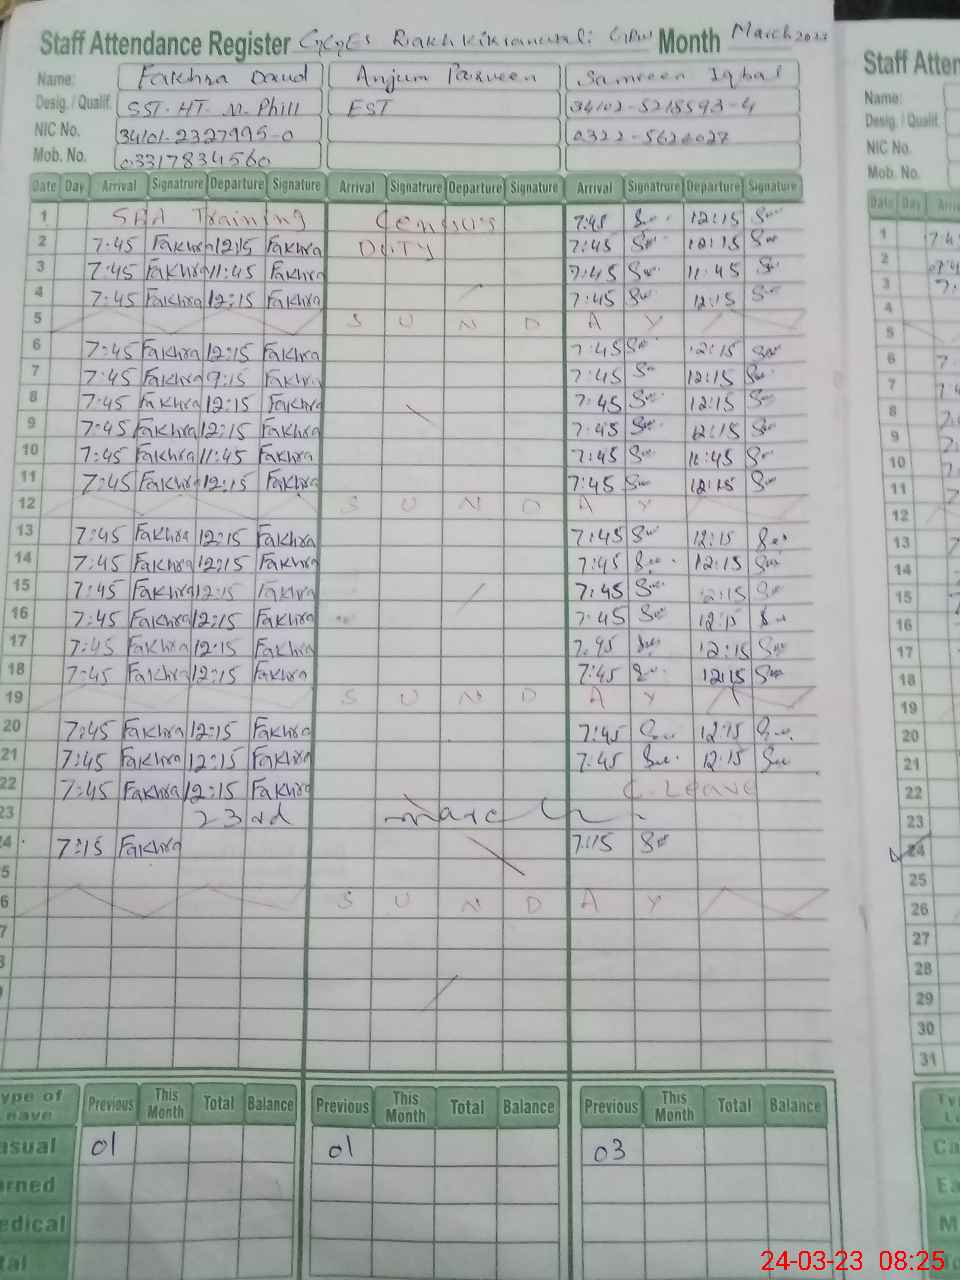 Staff Attendance Register GGES Month March 2023
Name: Fakhra Daud Anjum Parveen Samreen Iqbal
Desig. / Qualif. SST-HT. M. Phill EST 34102-5218593-4
NIC No. 34101-2327995-0 0322-5626027
Mob. No. 03317834560
Date Day Arrival Signatrure Departure Signature Arrival Signatrure Departure Signature Arrival Signatrure Departure Signature
1 Training Census 7:45 12:15
2 7:45 Fakhra 12:15 Fakhra DUTY 7:45 12:15
3 7:45 Fakhra 11:45 Fakhra 7:45 11:45
4 7:45 Fakhra 12:15 Fakhra 7:45 12:15
5 S U N D A Y
6 7:45 Fakhra 12:15 Fakhra 7:45 12:15
7 7:45 Fakhra 9:15 Fakhra 7:45 12:15
8 7:45 Fakhra 12:15 Fakhra 7:45 12:15
9 7:45 Fakhra 12:15 Fakhra 7:45 12:15
10 7:45 Fakhra 11:45 Fakhra 7:45 11:45
11 7:45 Fakhra 12:15 Fakhra 7:45 12:15
12 S U N D A Y
13 7:45 Fakhra 12:15 Fakhra 7:45 12:15
14 7:45 Fakhra 12:15 Fakhra 7:45 12:15
15 7:45 Fakhra 12:15 Fakhra 7:45 12:15
16 7:45 Fakhra 12:15 Fakhra 7:45 12:15
17 7:45 Fakhra 12:15 Fakhra 7:45 12:15
18 7:45 Fakhra 12:15 Fakhra 7:45 12:15
19 S U N D A Y
20 7:45 Fakhra 12:15 Fakhra 7:45 12:15
21 7:45 Fakhra 12:15 Fakhra 7:45 12:15
22 7:45 Fakhra 12:15 Fakhra C. Leave
23 23rd March
24 7:15 Fakhra 7:15
5
6 S U N D A Y
7
Type of Leave Previous This Month Total Balance Previous This Month Total Balance Previous This Month Total Balance
asual 01 01 03
rned
edical
tal
Staff Atten
Name:
Desig. / Qualif.
NIC No.
Mob. No.
Date Day
1
2
3
4
5
6
7
8
9
10
11
12
13
14
15
16
17
18
19
20
21
22
23
24
25
26
27
28
29
30
31
Ca
Ea
M
24-03-23 08:25